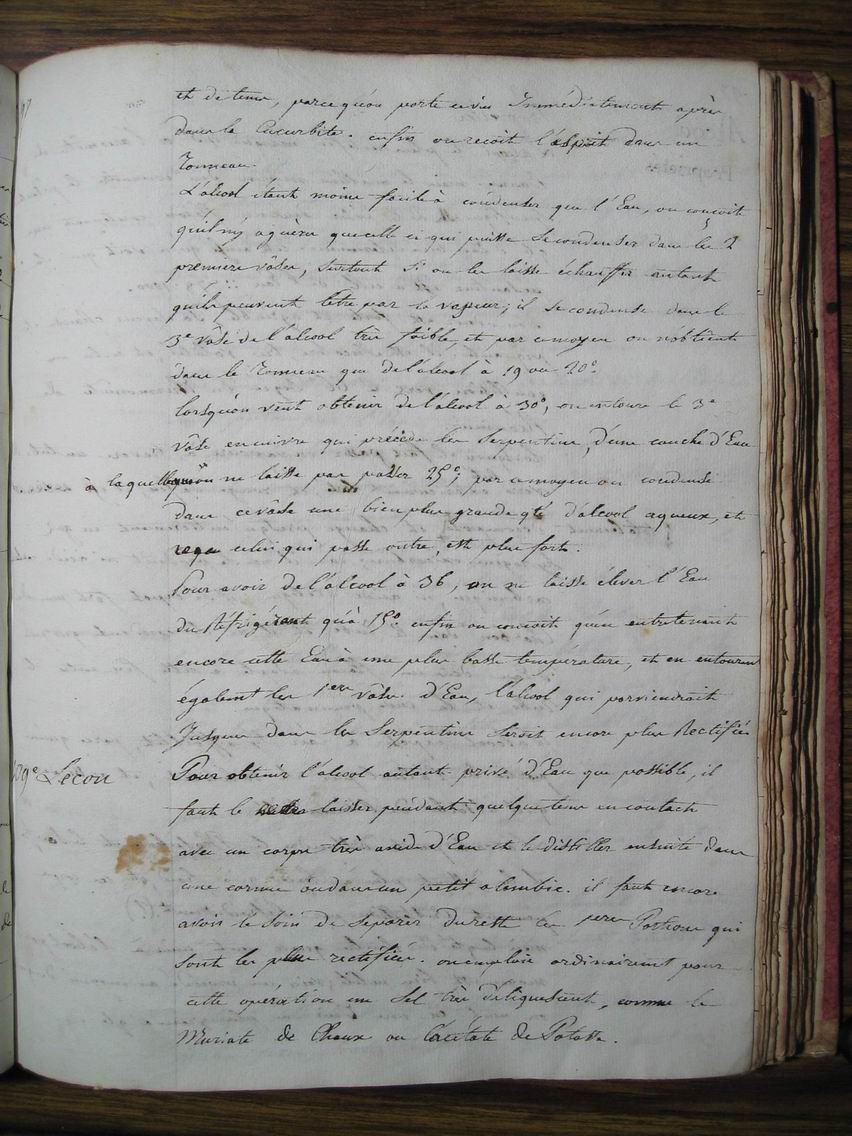 et de tems, parce qu'on porte ce vin Immédiatement après
dans la Cucurbite. enfin on reçoit l'esprit dans un
Tonneau.
L'alcool étant moins facile à condenser que l'Eau, on conçoit
qu'il n'y a guère que celle ci qui puisse se condenser dans les 2
premiers vâses, surtout si on les laisse échauffer autant
qu'ils peuvent l'être par la vapeur; il se condense dans le
3e vâse de l'alcool très faible, et par ce moyen on n'obtient
dans le Tonneau que de l'alcool à 19 ou 20°.
lorsqu'on veut obtenir de l'alcool à 30°, on entoure le 3e
vâse en cuivre qui précède les Serpentins, d'une couche d'Eau
à laquelle on ne laisse pas passer 25°; par ce moyen on condense
dans ce vâse une bien plus grande qté d'alcool aqueux, et
celui qui passe outre, est plus fort.
Pour avoir de l'alcool à 36, on ne laisse élever l'Eau
du Réfrigérant qu'à 15°. enfin on conçoit qu'en entretenant
encore cette Eau à une plus basse température, et en entourant
également les 1ers Vâses d'Eau, l'alcool qui parviendrait
Jusques dans les Serpentins seroit encore plus Rectifié.
39e Leçon
Pour obtenir l'alcool autant privé d'Eau que possible, il
faut le laisser pendant quelque tems en contact
avec un corps très avide d'Eau et le distiller ensuite dans
une cornue ou dans un petit alembic. il faut encore
avoir le soin de séparer du reste les 1eres Portions qui
sont les plus rectifiées. on emploie ordinairement pour
cette opération un Sel très déliquescent, comme le
Muriate de Chaux ou l'acétate de Potasse.